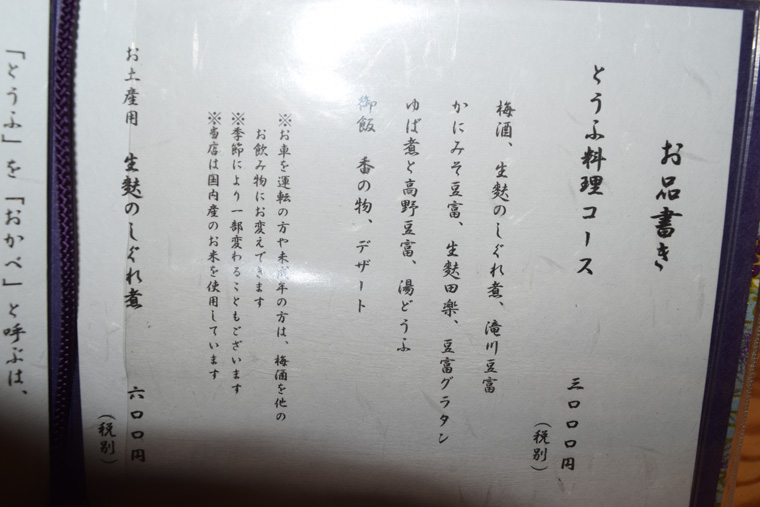 お品書き
とうふ料理コース
三〇〇〇円
（税別）
梅酒、生麩のしぐれ煮、滝川豆富
かにみそ豆富、生麩田楽、豆富グラタン
ゆば煮と高野豆富、湯どうふ
御飯 香の物、デザート
※お車を運転の方や未成年の方は、梅酒を他の
お飲み物にお変えできます
※季節により一部変わることもございます
※当店は国内産のお米を使用しています
お土産用 生麩のしぐれ煮 六〇〇円
（税別）
「とうふ」を「おかべ」と呼ぶは、